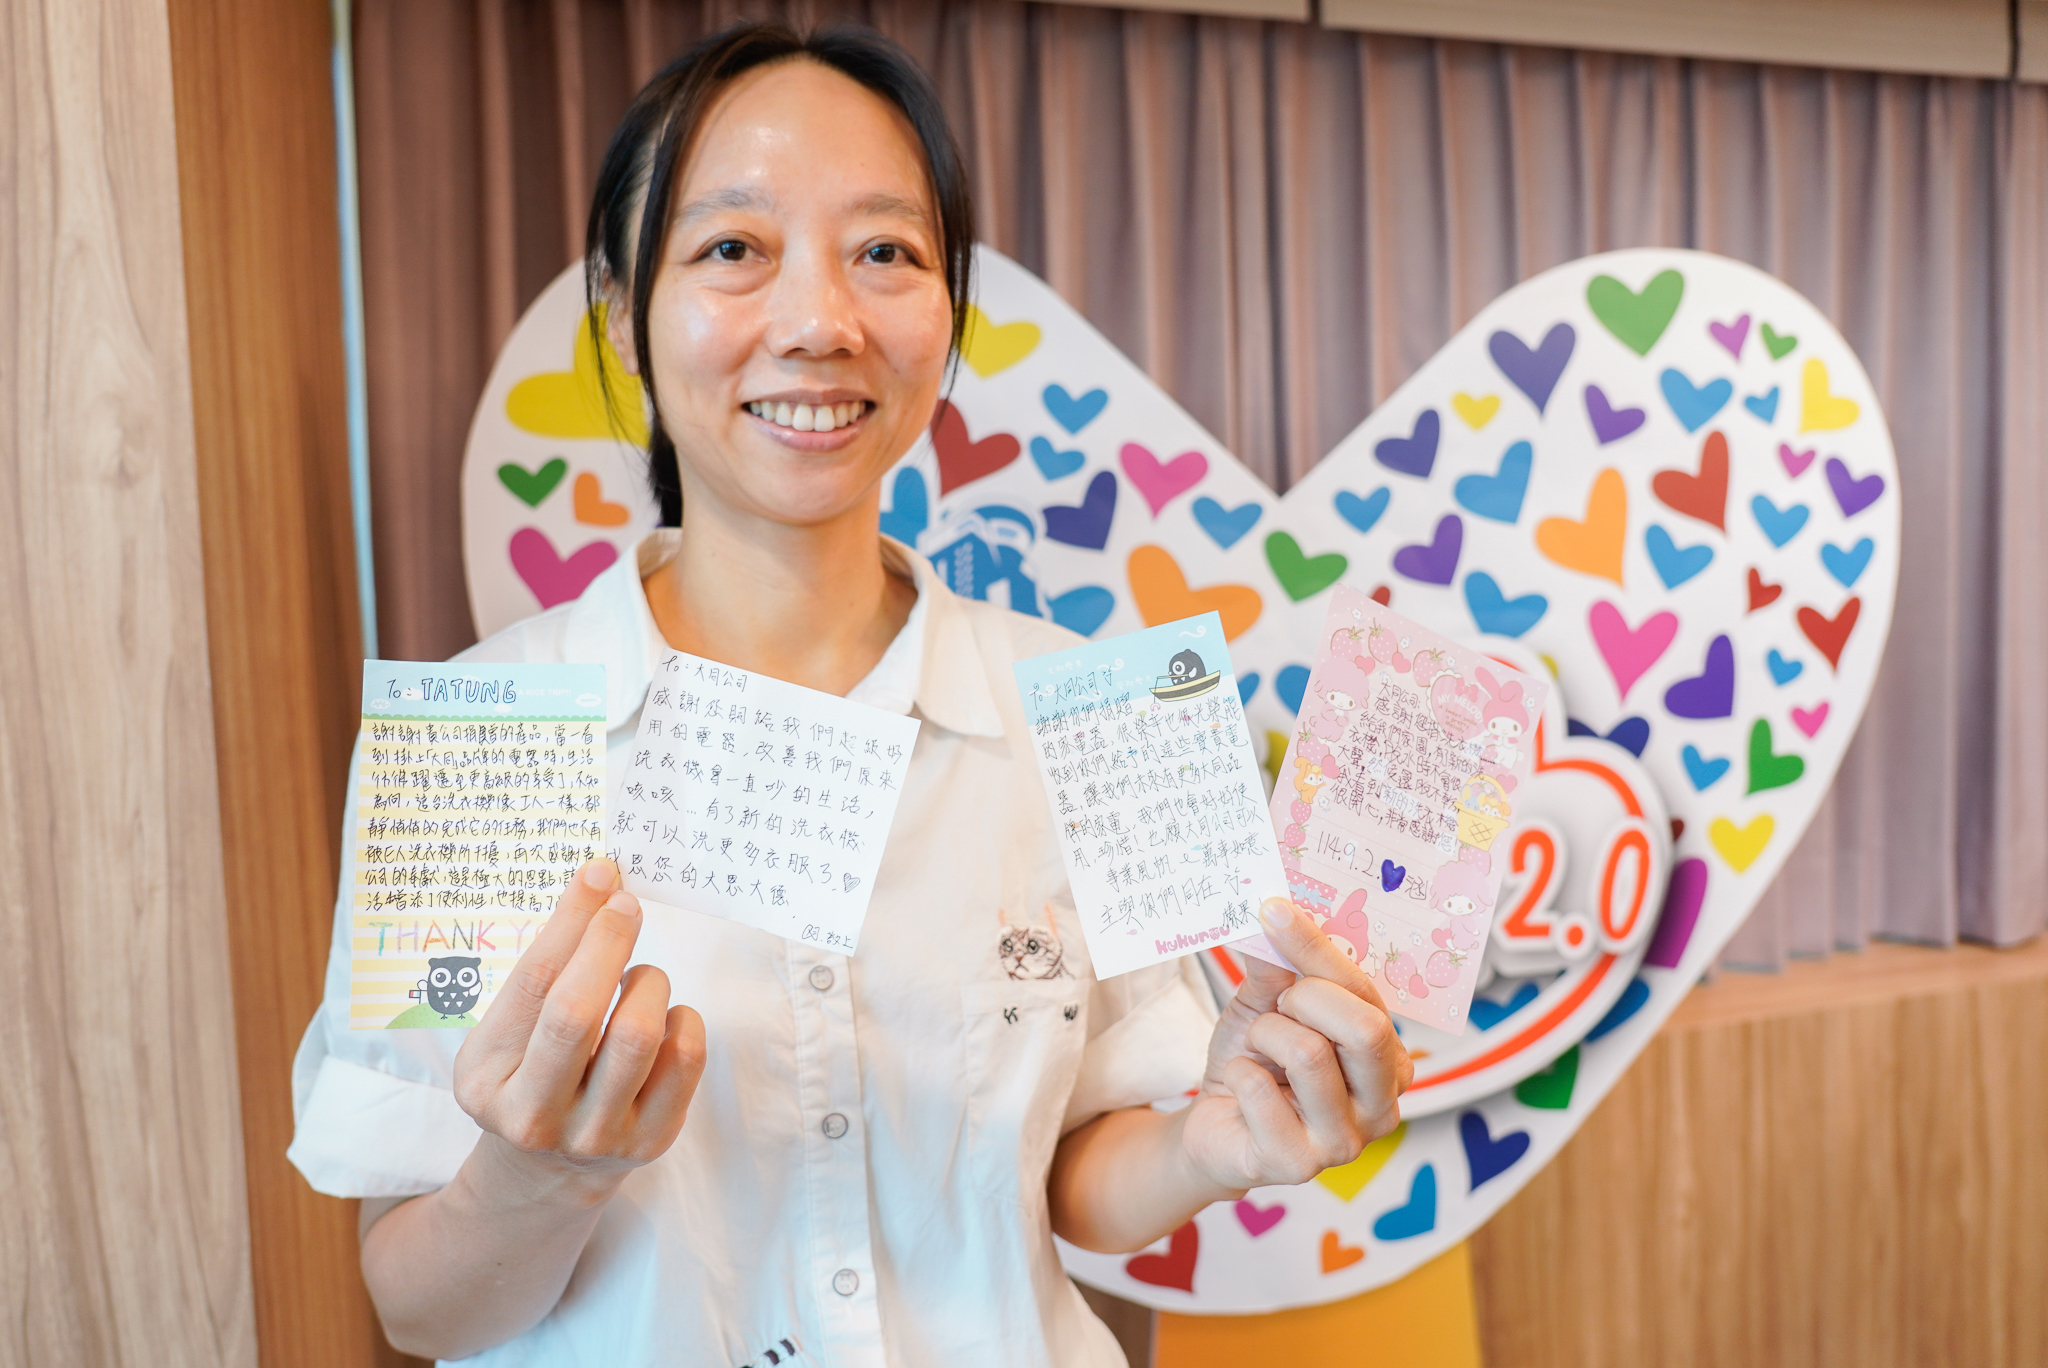 To: TATUNG
謝謝貴公司捐贈的產品,當一看
到掛上「大同品牌的電器時,生活
彿彿躍遷至更高級的享受了,不知
為何,這台洗衣機像工人一樣,都
靜悄悄的完成它的任務,我們也不再
被巨人洗衣機所干擾,再次感謝貴
公司的奉獻,這是極大的恩點,
活增添了便利性,也提高了
THANK Y
To: 大同公司
感謝您贈給我們超級好
用的電器,改善我們原來
洗衣機會一直吵的生活,
咳咳...有了新的洗衣機
就可以洗更多衣服了.♡
感恩您的大恩大德.
敬上
To 大同公司
謝謝你們捐贈
的家電器,很榮幸也很光榮能
收到你們給予的這些寶貴電
器,讓我們未來有更多大同品
牌的家電,我們也會好好使
用、珍惜!也願大同公司可以
事業風帆、萬事如意
主與你們同在
kukuruu
MY MELODY
大同公司:
感謝您捐洗衣機
給我們家園,有新的洗
衣機,脫水時不會很
大聲,
我看到新的洗衣機
很開心,非常感謝您!
114.9.2.
涵
2.0